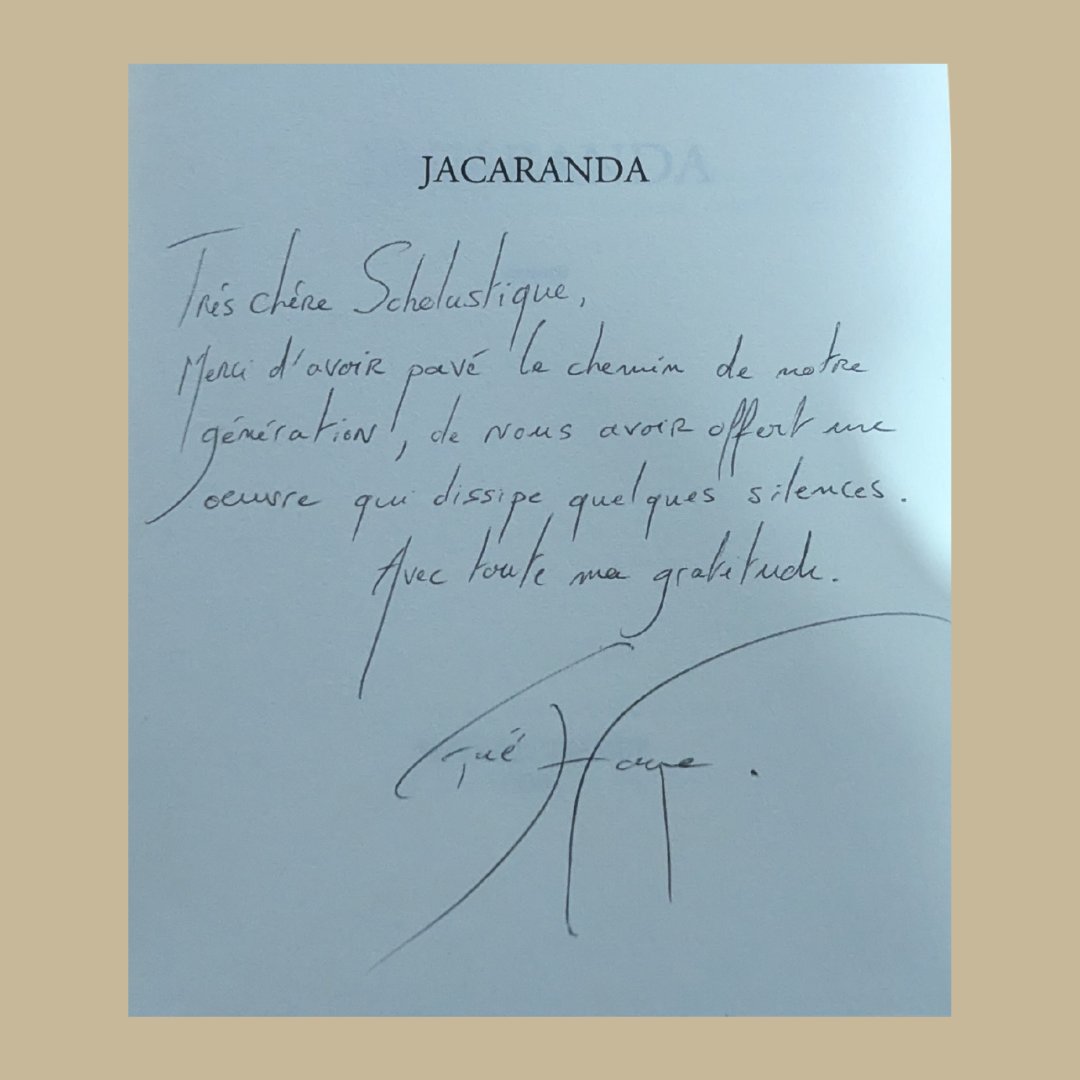 JACARANDA
Très chère Scholastique,
Merci d'avoir pavé le chemin de notre
génération, de nous avoir offert une
oeuvre qui dissipe quelques silences.
Avec toute ma gratitude.
Gaël Faye.